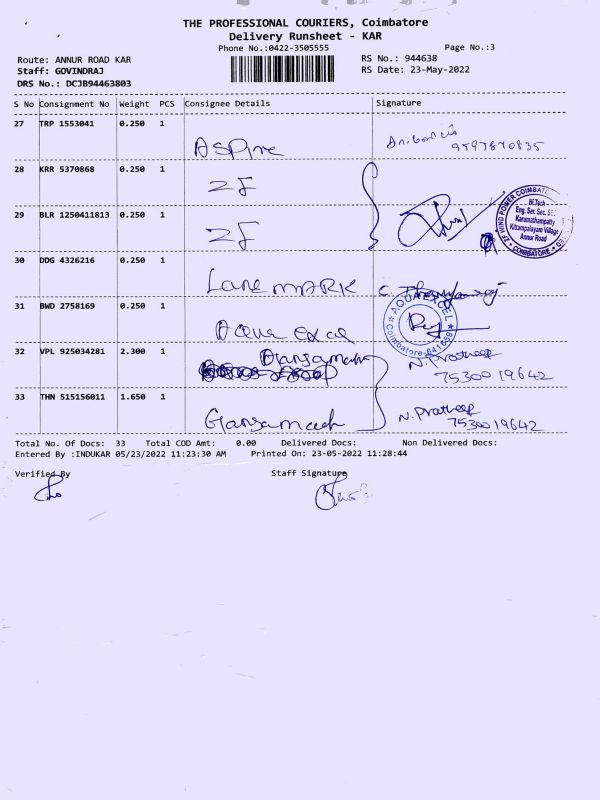 THE PROFESSIONAL COURIERS, Coimbatore
Delivery Runsheet - KAR
Phone No.:0422-3505555 Page No.:3
Route: ANNUR ROAD KAR RS No.: 944638
Staff: GOVINDRAJ RS Date: 23-May-2022
DRS No.: DCJB94463803
S No Consignment No Weight PCS Consignee Details Signature
27 TRP 1553041 0.250 1 ASPine
9597870835
28 KRR 5370868 0.250 1 ZF
29 BLR 1250411813 0.250 1 ZF
ZF WIND POWER COIMBATORE
Hi.Tech
Eng. Ser. Sec. SEZ
Karamathampatty
Kittampalayam Village
Annur Road
COIMBATORE
30 DDG 4326216 0.250 1 Lane MARK
31 BWD 2758169 0.250 1 Aqua excel
AQUA EXCEL
Coimbatore-641659
32 VPL 925034281 2.300 1 N. Pratheep
7530019642
33 THN 515156011 1.650 1 Gansamech N. Pratheep
7530019642
Total No. Of Docs: 33 Total COD Amt: 0.00 Delivered Docs: Non Delivered Docs:
Entered By :INDUKAR 05/23/2022 11:23:30 AM Printed On: 23-05-2022 11:28:44
Verified By Staff Signature